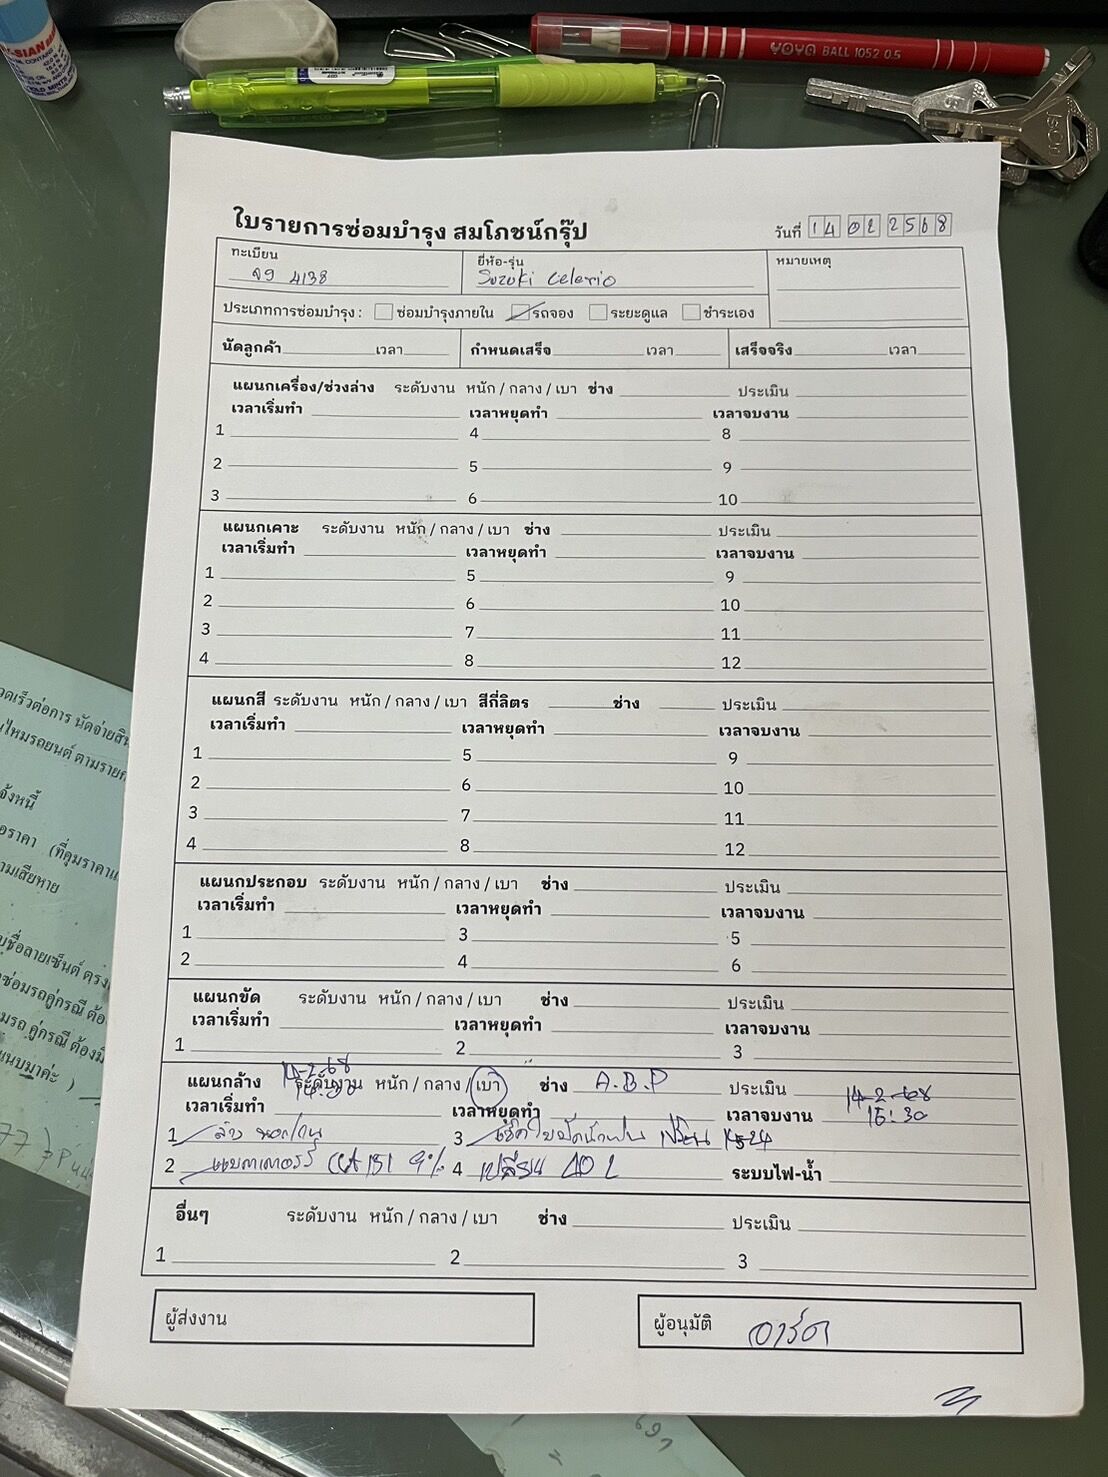 YOYA BALL 1052 0.5
ใบรายการซ่อมบำรุง สมโภชน์กรุ๊ป
วันที่ 14 02 2568
ทะเบียน
4138
ยี่ห้อ-รุ่น
Suzuki Celerio
หมายเหตุ
ประเภทการซ่อมบำรุง : ซ่อมบำรุงภายใน รถจอง ระยะดูแล ชำระเอง
นัดลูกค้า เวลา กำหนดเสร็จ เวลา เสร็จจริง เวลา
แผนกเครื่อง/ช่วงล่าง ระดับงาน หนัก / กลาง / เบา ช่าง ประเมิน
เวลาเริ่มทำ เวลาหยุดทำ เวลาจบงาน
1 4 8
2 5 9
3 6 10
แผนกเคาะ ระดับงาน หนัก / กลาง / เบา ช่าง ประเมิน
เวลาเริ่มทำ เวลาหยุดทำ เวลาจบงาน
1 5 9
2 6 10
3 7 11
4 8 12
แผนกสี ระดับงาน หนัก / กลาง / เบา สีกี่ลิตร ช่าง ประเมิน
เวลาเริ่มทำ เวลาหยุดทำ เวลาจบงาน
1 5 9
2 6 10
3 7 11
4 8 12
แผนกประกอบ ระดับงาน หนัก / กลาง / เบา ช่าง ประเมิน
เวลาเริ่มทำ เวลาหยุดทำ เวลาจบงาน
1 3 5
2 4 6
แผนกขัด ระดับงาน หนัก / กลาง / เบา ช่าง ประเมิน
เวลาเริ่มทำ เวลาหยุดทำ เวลาจบงาน
1 2 3
14-2-68
แผนกล้าง ระดับงาน หนัก / กลาง / เบา ช่าง A.B.P ประเมิน
14-2-68
เวลาเริ่มทำ เวลาหยุดทำ เวลาจบงาน 15:30
1 ล้าง 3 เช็คใบปัดน้ำฝน
2 แบตเตอรี่ CCA 151 9% 4 เปลี่ยน ระบบไฟ-น้ำ
อื่นๆ ระดับงาน หนัก / กลาง / เบา ช่าง ประเมิน
1 2 3
ผู้ส่งงาน
ผู้อนุมัติ อาร์ต